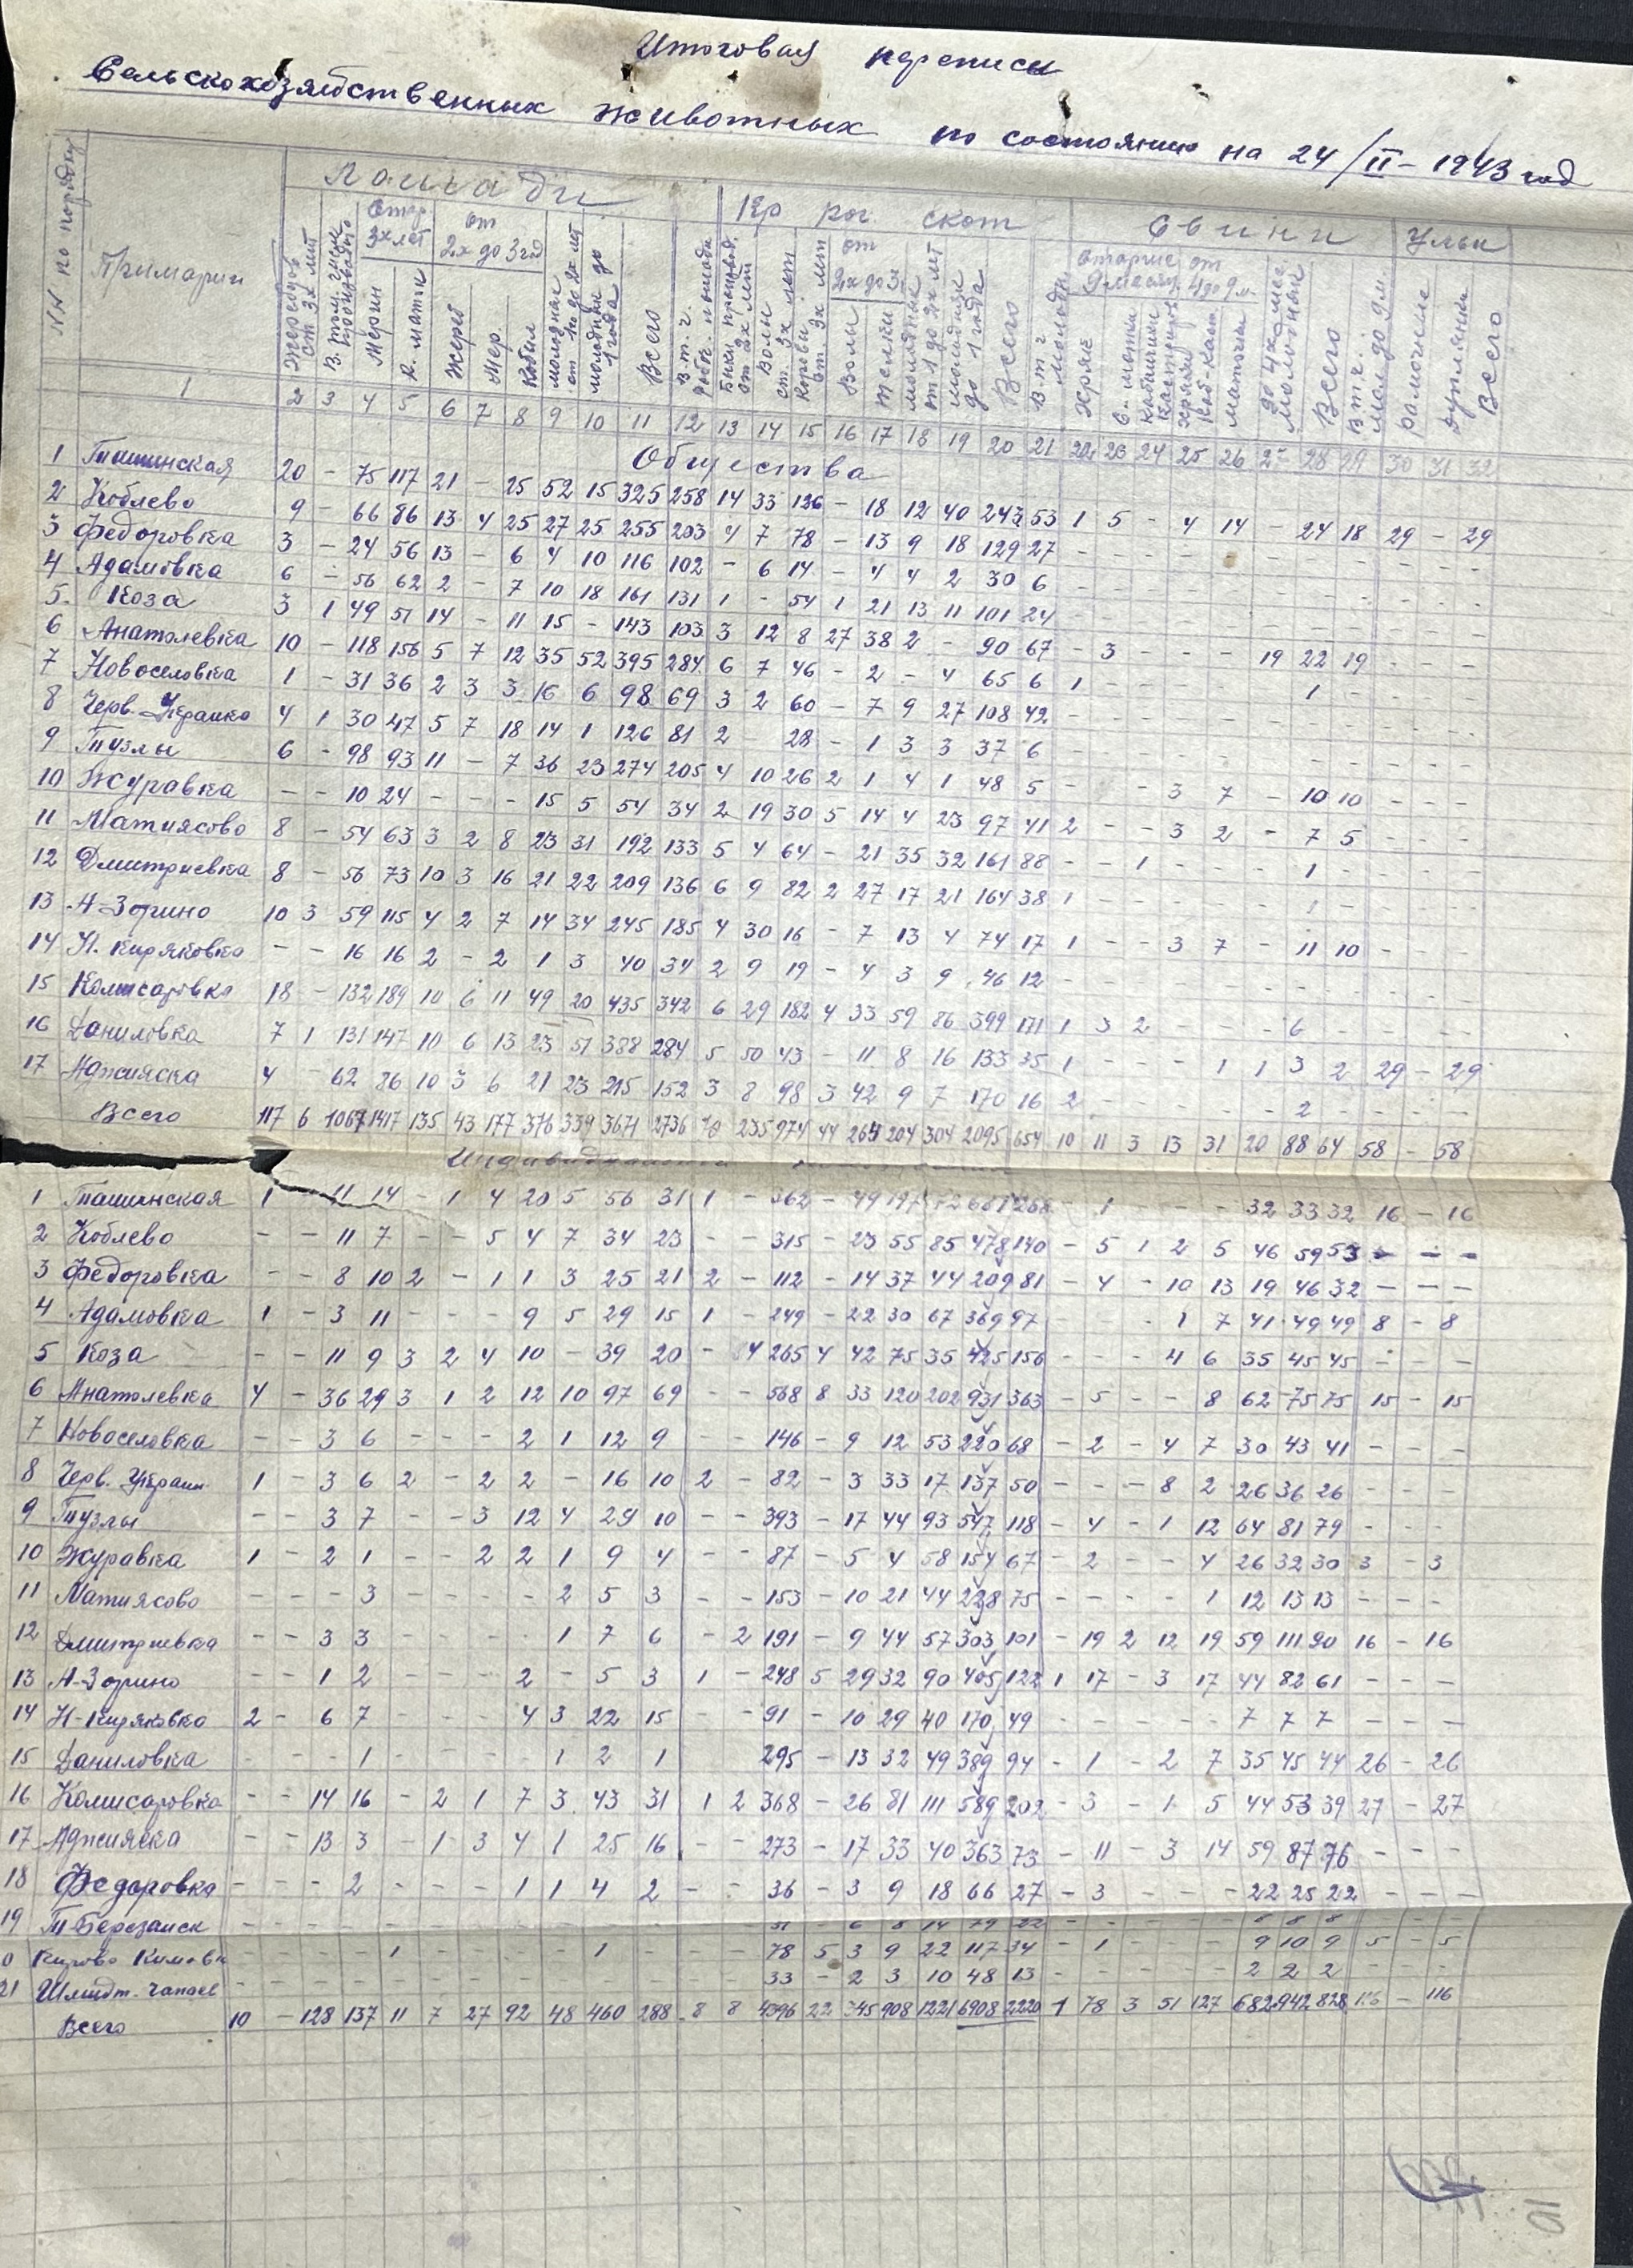 Итоговая переписи
Сельскохозяйственных животных по состоянию на 24/II-1943 год
NN по порядку Примарии Лошади Кр рог скот Свини Ульи
Жеребцов ст 3х лет В том числе производит. Стар. 3х лет Мерин К. матк от 2х до 3 год Жереб Мер. Кобыл молодняк от 1 до 2х лет молодняк до 1 года Всего В. т. ч. рабоч. лошади Быки производ. от 2х лет Волы ст. 3х лет Коровы ст. 3х лет от 2х до 3х Волы Желки молодняк от 1 до 2х лет молодняк до 1 года Всего В т ч молодн Хряк Всего В т. ч. мол до 9 м. рамочные Дуплянки Всего
1 2 3 4 5 6 7 8 9 10 11 12 13 14 15 16 17 18 19 20 21 22 23 24 25 26 27 28 29 30 31 32
Общества
1 Ташинская 20 - 75 117 21 - 25 52 15 325 258 14 33 126 - 18 12 40 243 53 1 5 - 4 14 - 24 18 29 - 29
2 Коблево 9 - 66 86 13 4 25 27 25 255 203 4 7 78 - 13 9 18 129 27 - - - - - - - - - - -
3 Федоровка 3 - 24 56 13 - 6 4 10 116 102 - 6 14 - 4 4 2 30 6 - - - - - - - - - - -
4 Адамовка 6 - 56 62 2 - 7 10 18 161 131 1 - 54 1 21 13 11 101 24 - - - - - - - - - - -
5. Коза 3 1 49 51 14 - 11 15 - 143 103 3 12 8 27 38 2 - 90 67 - 3 - - - 19 22 19 - - -
6 Анатолевка 10 - 118 156 5 7 12 35 52 395 284 6 7 46 - 2 - 4 65 6 1 - - - - - 1 - - - -
7 Новоселовка 1 - 31 36 2 3 3 16 6 98 69 3 2 60 - 7 9 27 108 42 - - - - - - - - - - -
8 Черв. Украико 4 1 30 47 5 7 18 14 1 126 81 2 - 28 - 1 3 3 37 6 - - - - - - - - - - -
9 Тузлы 6 - 98 93 11 - 7 36 23 274 205 4 10 26 2 1 4 1 48 5 - - - 3 7 - 10 10 - - -
10 Журавка - - 10 24 - - - 15 5 54 34 2 19 30 5 14 4 23 97 41 2 - - 3 2 - 7 5 - - -
11 Матиясово 8 - 54 63 3 2 8 23 31 192 133 5 4 64 - 21 35 32 161 88 - - 1 - - - 1 - - - -
12 Дмитриевка 8 - 56 73 10 3 16 21 22 209 136 6 9 82 2 27 17 21 164 38 1 - - - - - 1 - - - -
13 А-Зорино 10 3 59 115 4 2 7 14 34 245 185 4 30 16 - 7 13 4 74 17 1 - - 3 7 - 11 10 -
14 Н. Киряковко - - 16 16 2 - 2 1 3 40 34 2 9 19 - 4 3 9 46 12 - - - - - - - - - - -
15 Комисаровка 18 - 132 189 10 6 11 49 20 435 342 6 29 182 4 33 59 86 399 171 1 3 2 - - - 6 - - - -
16 Даниловка 7 1 131 147 10 6 13 23 51 388 284 5 50 43 - 11 8 16 133 35 1 - - - 1 1 3 2 29 - 29
17 Аджияска 4 - 62 86 10 3 6 21 23 215 152 3 8 98 3 42 9 7 170 16 2 - - - - - 2 - - - -
Всего 117 6 1067 1417 135 43 177 376 339 3671 2736 70 235 974 44 264 204 304 2095 654 10 11 3 13 31 20 88 64 58 - 58
1 Ташинская 1 - 11 14 - 1 4 20 5 56 31 1 - 362 - 49 197 - 1 - - - 32 33 32 16 - 16
2 Коблево - - 11 7 - - 5 4 7 34 23 - - 315 - 23 55 85 478 140 - 5 1 2 5 46 59 53 - - -
3 Федоровка - - 8 10 2 - 1 1 3 25 21 2 - 112 - 14 37 44 209 81 - 4 - 10 13 19 46 32 - - -
4 Адамовка 1 - 3 11 - - - 9 5 29 15 1 - 249 - 22 30 67 369 97 - - - 1 7 41 49 49 8 - 8
5 Коза - - 11 9 3 2 4 10 - 39 20 - 4 265 4 42 75 35 425 156 - - - 4 6 35 45 45 - - -
6 Анатолевка 4 - 36 29 3 1 2 12 10 97 69 - - 568 8 33 120 202 931 363 - 5 - - 8 62 75 75 15 - 15
7 Новоселовка - - 3 6 - - - 2 1 12 9 - - 146 - 9 12 53 220 68 - 2 - 4 7 30 43 41 - - -
8 Черв. Украин. 1 - 3 6 2 - 2 2 - 16 10 2 - 82 - 3 33 17 137 50 - - - 8 2 26 36 26 - - -
9 Тузлы - - 3 7 - - 3 12 4 29 10 - - 393 - 17 44 93 547 118 - 4 - 1 12 64 81 79 - - -
10 Журавка 1 - 2 1 - - 2 2 1 9 4 - - 87 - 5 4 58 154 67 - 2 - - 4 26 32 30 3 - 3
11 Матиясово - - - 3 - - - - 2 5 3 - - 153 - 10 21 44 228 75 - - - - 1 12 13 13 - - -
12 Дмитриевка - - 3 3 - - - - 1 7 6 - 2 191 - 9 44 57 303 101 - 19 2 12 19 59 111 90 16 - 16
13 А-Зорино - - 1 2 - - - 2 - 5 3 1 - 248 5 29 32 90 405 122 1 17 - 3 17 44 82 61 - - -
14 Н-Киряковко 2 - 6 7 - - - 4 3 22 15 - - 91 - 10 29 40 170 49 - - - - - 7 7 7 - - -
15 Даниловка - - - 1 - - - - 1 2 1 295 - 13 32 49 389 94 - 1 - 2 7 35 45 44 26 - 26
16 Комисаровка - - 14 16 - 2 1 7 3 43 31 1 2 368 - 26 81 111 589 202 - 3 - 1 5 44 53 39 27 - 27
17 Аджияска - - 13 3 - 1 3 4 1 25 16 - - 273 - 17 33 40 363 73 - 11 - 3 14 59 87 76 - - -
18 Федоровка - - - 2 - - - 1 1 4 2 - - 36 - 3 9 18 66 27 - 3 - - - 22 25 22 - - -
19 Т-Березанск
Кирово 1 1 78 5 3 9 22 117 34 - 1 9 10 9 5 - 5
21 Шмидт. Чапаев 33 - 2 3 10 48 13 2 2 2
Всего 10 - 128 137 11 7 27 92 48 460 288 8 8 4396 22 345 908 1221 6908 2220 1 78 3 51 127 682 942 828 116 - 116